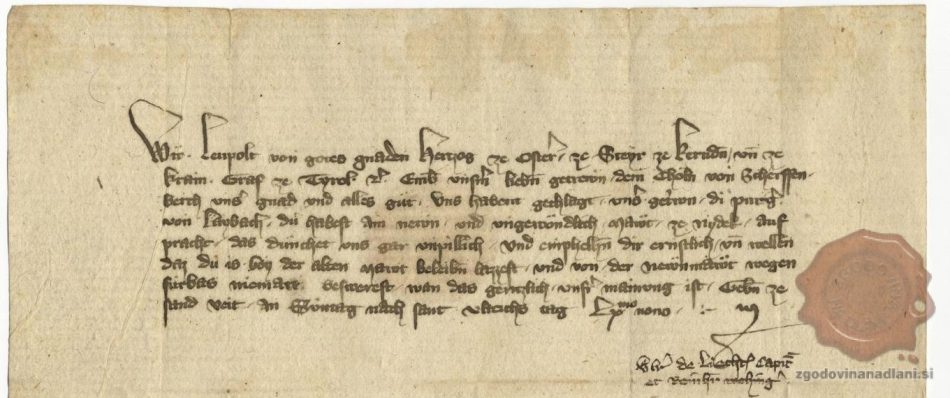 Wir Leupolt von gotes gnaden Hertzog ze Osterr ze Steyr ze Kernden vnd ze
krain Graf ze Tyrol Emb vnserm lieben getrewn dem von Scherffen
berch vnser gnad vnd alles gut Vns habent gechlagt vnser getrewn di purger
von Laybach du habest ain newn vnd vngewondlich Mawt ze auf
pracht das dunchet vns gar vnpillich vnd emphelhen dir ernstlich vnd wellen
daz du is bey der alten Mawt beleiben lazzest vnd von der newn mawt wegen
furbas niemann beswerest wan das gentzlich vnser mainung ist Geben ze
sand veit an Suntag nach sant vlrichs tag Lxmo nono
de Capit
et
zgodovinanadlani.si